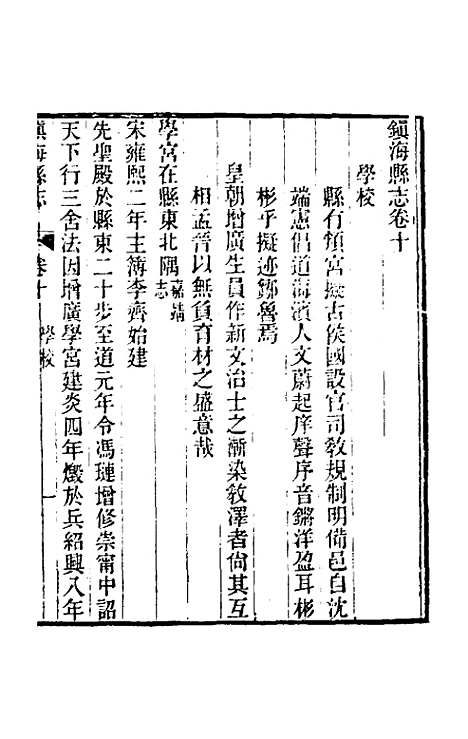 鎮海縣志卷十
學校
縣有領宮擬古侯國設官司敎規制明備邑自沈
端憲倡道海濱人文蔚起庠聲序音鏘洋盈耳彬
彬乎擬迹鄒魯焉
皇朝增廣生員作新文治士之漸染敎澤者尙其互
相孟晉以無負育材之盛意哉
學宮在縣東北隅嘉靖志
宋雍熙二年主簿李齊始建
先聖殿於縣東二十步至道元年令馮璉增修崇甯中詔
天下行三舍法因增廣學宮建炎四年燬於兵紹興八年
鎮海縣志 卷十 學校 一